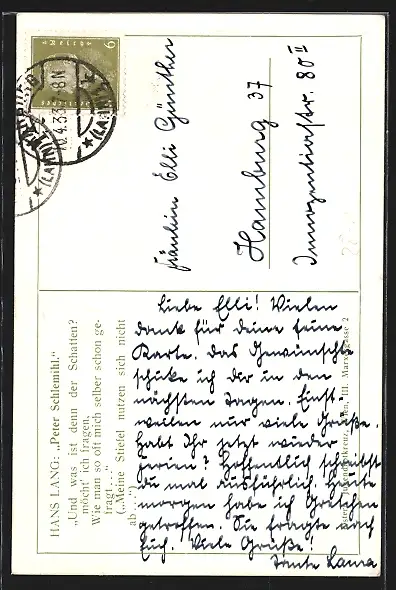 HANS LANG: „Peter Schlemihl."
„Und was ist denn der Schatten?
möcht' ich fragen,
Wie man so oft mich selber schon ge-
fragt . . ."
(„Meine Stiefel nutzen sich nicht
ab . . .")
Fräulein Elli Günther
Hamburg 37
Innozentiastr. 80 II
Liebe Elli! Vielen
Dank für deine feine
Karte. Das Gewünschte
schicke ich dir in den
nächsten Tagen. Einst-
weilen nur viele Grüße.
Habt Ihr jetzt wieder
Ferien? Hoffentlich schreibst
du mal ausführlich. Heute
morgen habe ich Gretchen
getroffen. Sie fragte nach
Euch. Viele Grüße!
Tante Laura
III. Marxergasse 2
6